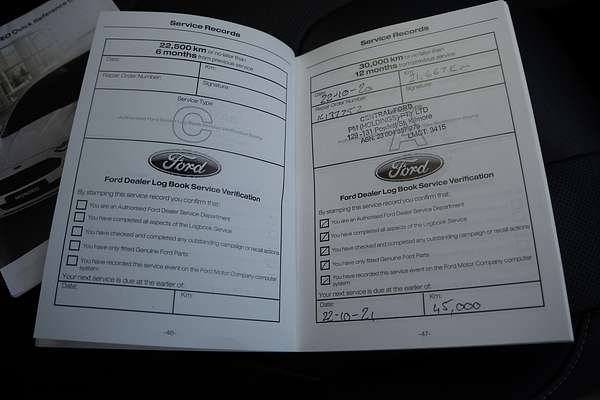 Service Records
22,500 km or no later than
6 months from previous service
Date:
Km:
Repair Order Number:
Signature:
Service Type
C
Authorised Ford
Ford
Ford Dealer Log Book Service Verification
By stamping this service record you confirm that:
You are an Authorised Ford Dealer Service Department
You have completed all aspects of the Logbook Service
You have checked and completed any outstanding campaign or recall actions
You have only fitted Genuine Ford Parts
You have recorded this service event on the Ford Motor Company computer
system
Your next service is due at the earlier of:
Date:
Km:
-46-
Service Records
30,000 km or no later than
12 months from previous service
Date:
22-10-20
Km:
Repair Order Number:
Signature:
CENTRAL FORD
PM (HOLDINGS) PTY LTD
129-131 Powlett St, Kilmore
LMCT: 3415
A
Ford
Ford Dealer Log Book Service Verification
By stamping this service record you confirm that:
You are an Authorised Ford Dealer Service Department
You have completed all aspects of the Logbook Service
You have checked and completed any outstanding campaign or recall actions
You have only fitted Genuine Ford Parts
You have recorded this service event on the Ford Motor Company computer
system
Your next service is due at the earlier of:
Date:
22-10-21
Km:
45,000
-47-